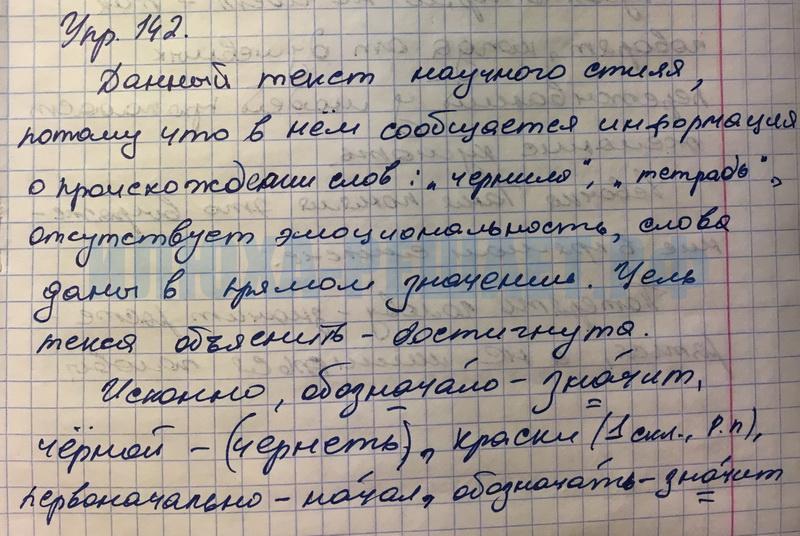 Упр. 142.
Данный текст научного стиля,
потому что в нём сообщается информация
о происхождении слов: „чернила", „тетрадь",
отсутствует эмоциональность, слова
даны в прямом значении. Цель
текса объяснить - достигнута.
Исконно, обозначало - значит,
чёрной - (чернеть), краски (1 скл., Р.п),
первоначально - начал, обозначать - значит